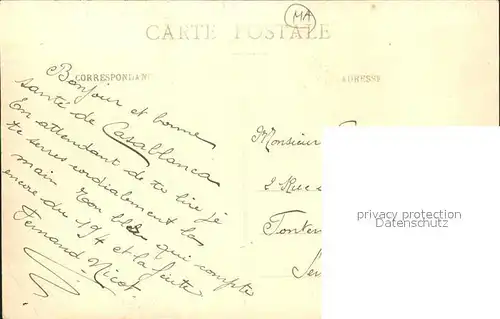 MA
CARTE POSTALE
CORRESPONDANCE
ADRESSE
Bonjour et bonne
santé de Casablanca
En attendant de te lire je
te serres cordialement la
main Ton qui compte
encore du 194 et la
Fernand Nicot
Monsieur
2 Rue
privacy protection
Datenschutz